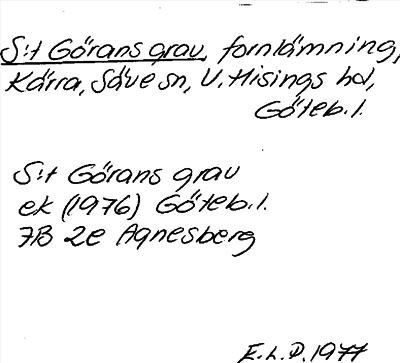 S:t Görans grav, fornlämning,
Kärra, Säve sn, V. Hisings hd,
Göteb.l.
S:t Görans grav
ek (1976) Göteb.l.
7B 2e Agnesberg
E.L.D. 1977